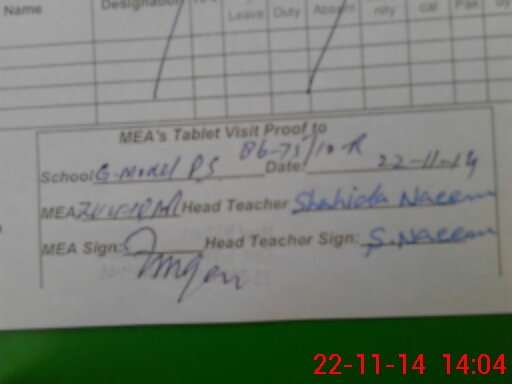 Name Designation Leave Duty Absent nity cal Pak
MEA's Tablet Visit Proof to
86-75/10-R
School G. Model PS Date: 22-11-14
MEA Head Teacher Shahida Naeem
MEA Sign: Head Teacher Sign: S. Naeem
22-11-14 14:04